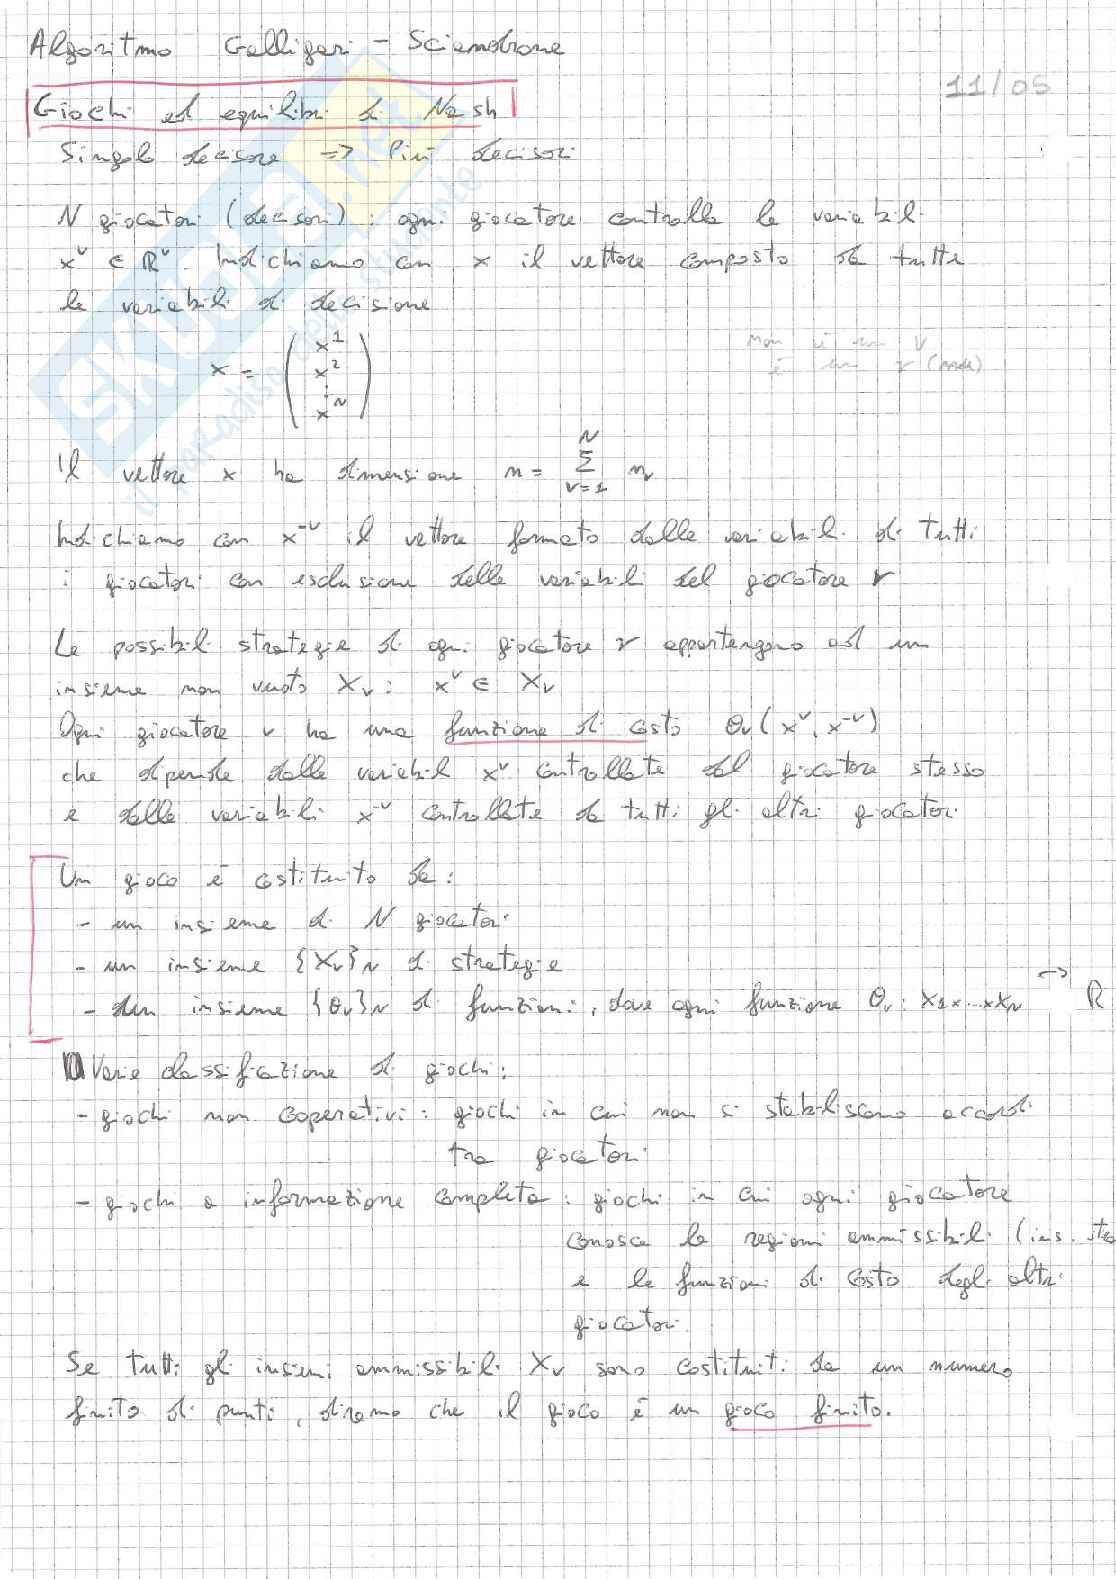 Algoritmo Galligari - Sciandrone
11/05
Giochi ed equilibri di Nash
Singolo decisore => Più decisori
N giocatori (decisori) : ogni giocatore controlla le variabili
x^ν ∈ ℝ^ν. Indichiamo con x il vettore composto da tutte
le variabili di decisione
x = ( x^1
x^2
⋮
x^N )
non è un V
è un ν
Il vettore x ha dimensione n = Σ_{ν=1}^{N} n_ν
Indichiamo con x^-ν il vettore formato dalle variabili di tutti
i giocatori con esclusione delle variabili del giocatore ν
Le possibili strategie di ogni giocatore ν appartengono ad un
insieme non vuoto X_ν : x^ν ∈ X_ν
Ogni giocatore ν ha una funzione di costo θ_ν(x^ν, x^-ν)
che dipende dalle variabili x^ν controllate dal giocatore stesso
e dalle variabili x^-ν controllate da tutti gli altri giocatori
Un gioco è costituito da :
- un insieme di N giocatori
- un insieme {X_ν}_N di strategie
- un insieme {θ_ν}_N di funzioni, dove ogni funzione θ_ν : X_1×...×X_N → ℝ
Varie classificazione di giochi :
- giochi non coperativi : giochi in cui non si stabiliscono accordi
tra giocatori
- giochi a informazione completa : giochi in cui ogni giocatore
conosce le regioni ammissibili (ins. stra
e le funzioni di costo degli altri
giocatori.
Se tutti gli insiemi ammissibili X_ν sono costituiti da un numero
finito di punti, diremo che il gioco è un gioco finito.
SKUOLA.net
il paradiso dello studente